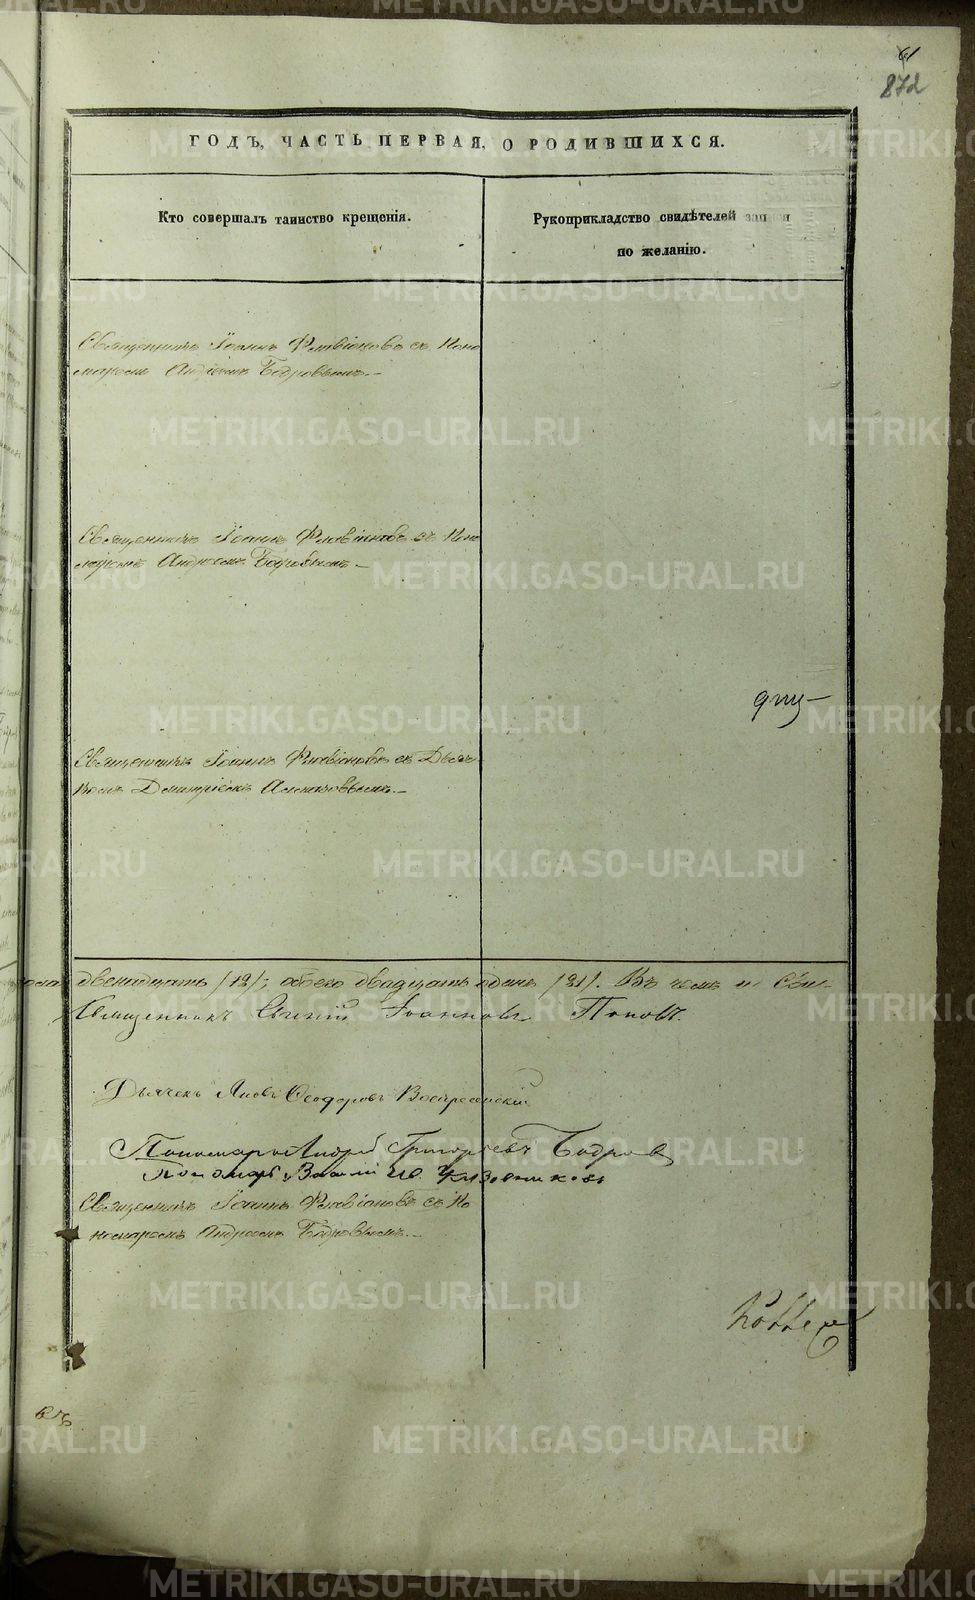 61
872
ГОДЪ, ЧАСТЬ ПЕРВАЯ, О РОДИВШИХСЯ.
Кто совершалъ таинство крещенія.
Рукоприкладство свидѣтелей записи
по желанію.
Священникъ Іоаннъ Флавіановъ съ Поно
маремъ Андреемъ Бодровымъ.
Священникъ Іоаннъ Флавіановъ съ Поно
маремъ Андреемъ Бодровымъ.
Священникъ Іоаннъ Флавіановъ съ Дьяч-
комъ Димитріемъ
двенадцать /12/; обоего двадцать одинъ /21/. Въ чемъ и
Священникъ Іоанновъ Поповъ.
Дьячекъ Яковъ Ѳеодоровъ Воскресенскій
Пономарь Андрей Григорьевъ Бодровъ
Пономарь
Священникъ Іоаннъ Флавіановъ съ По
номаремъ Андреемъ Бодровымъ.
METRIKI.GASO-URAL.RU